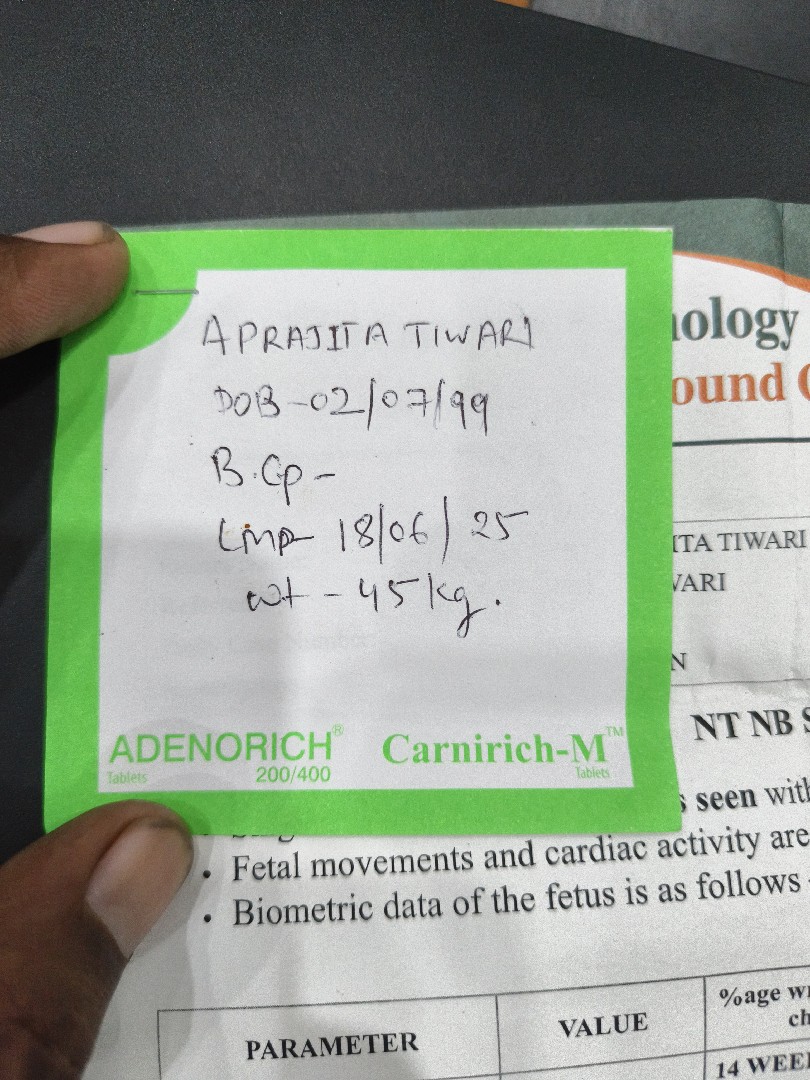 APRAJITA TIWARI
DOB-02/07/99
B.Gp-
Lmp 18/06/25
wt-45kg.
ADENORICH® Carnirich-M™
Tablets 200/400 Tablets
ology
ound
ITA TIWARI
VARI
N
NT NB S
seen with
• Fetal movements and cardiac activity are
• Biometric data of the fetus is as follows
PARAMETER VALUE %age wi
ch
14 WEE